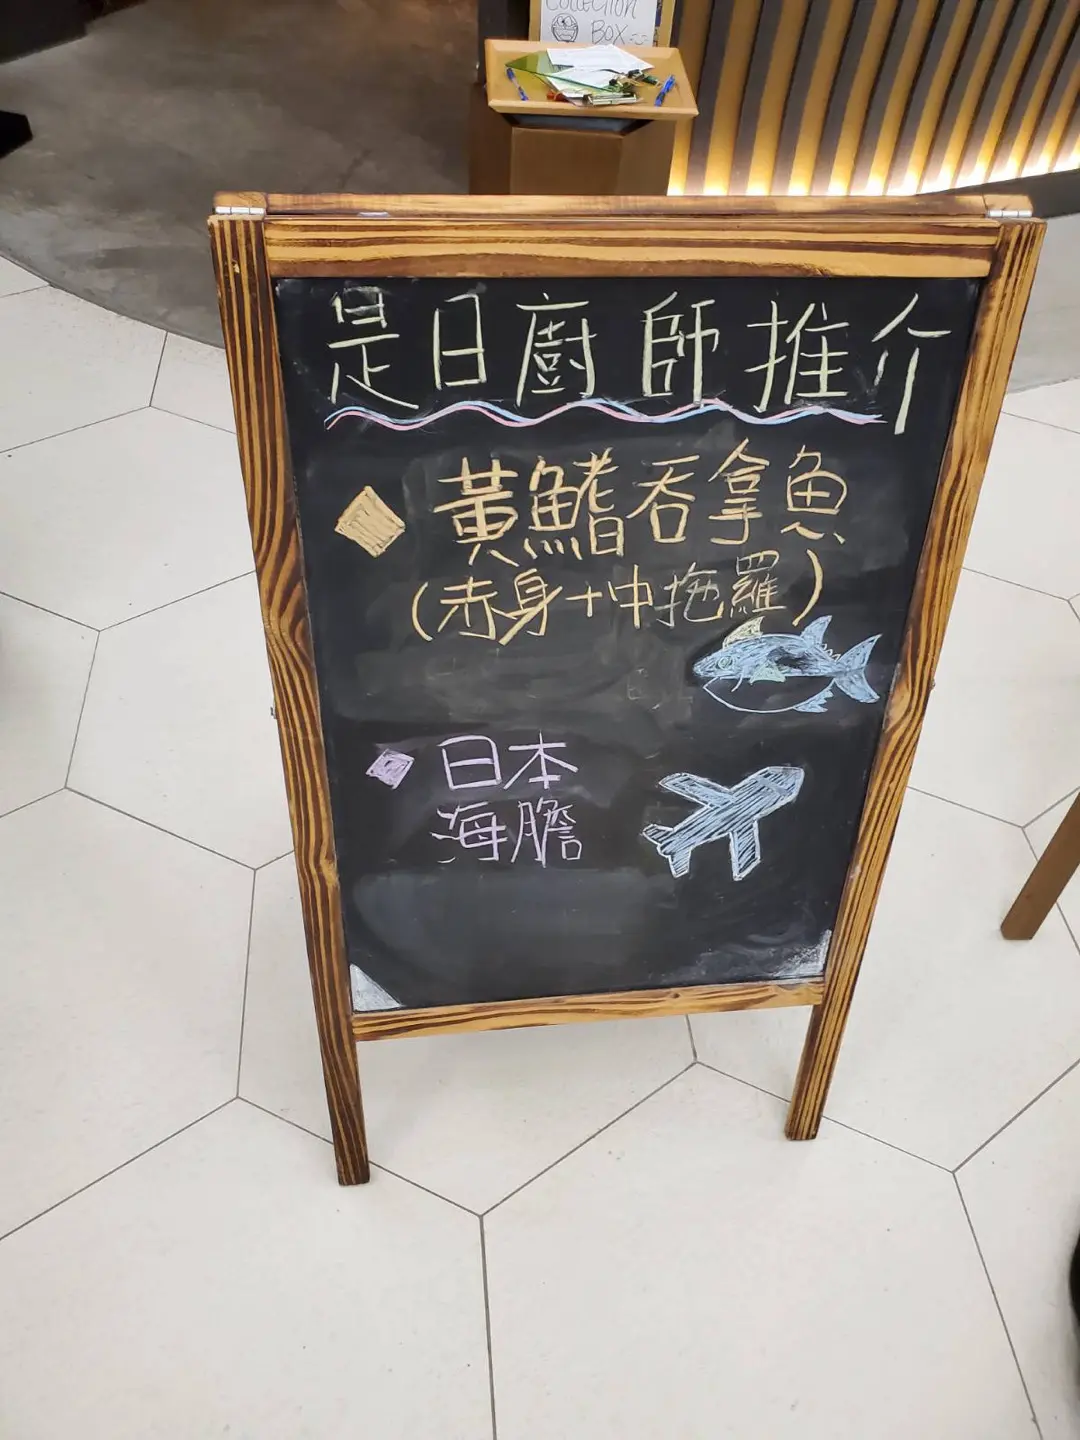 Collection
Box
是日廚師推介
黃鰭吞拿魚
(赤身+中拖羅)
日本
海膽